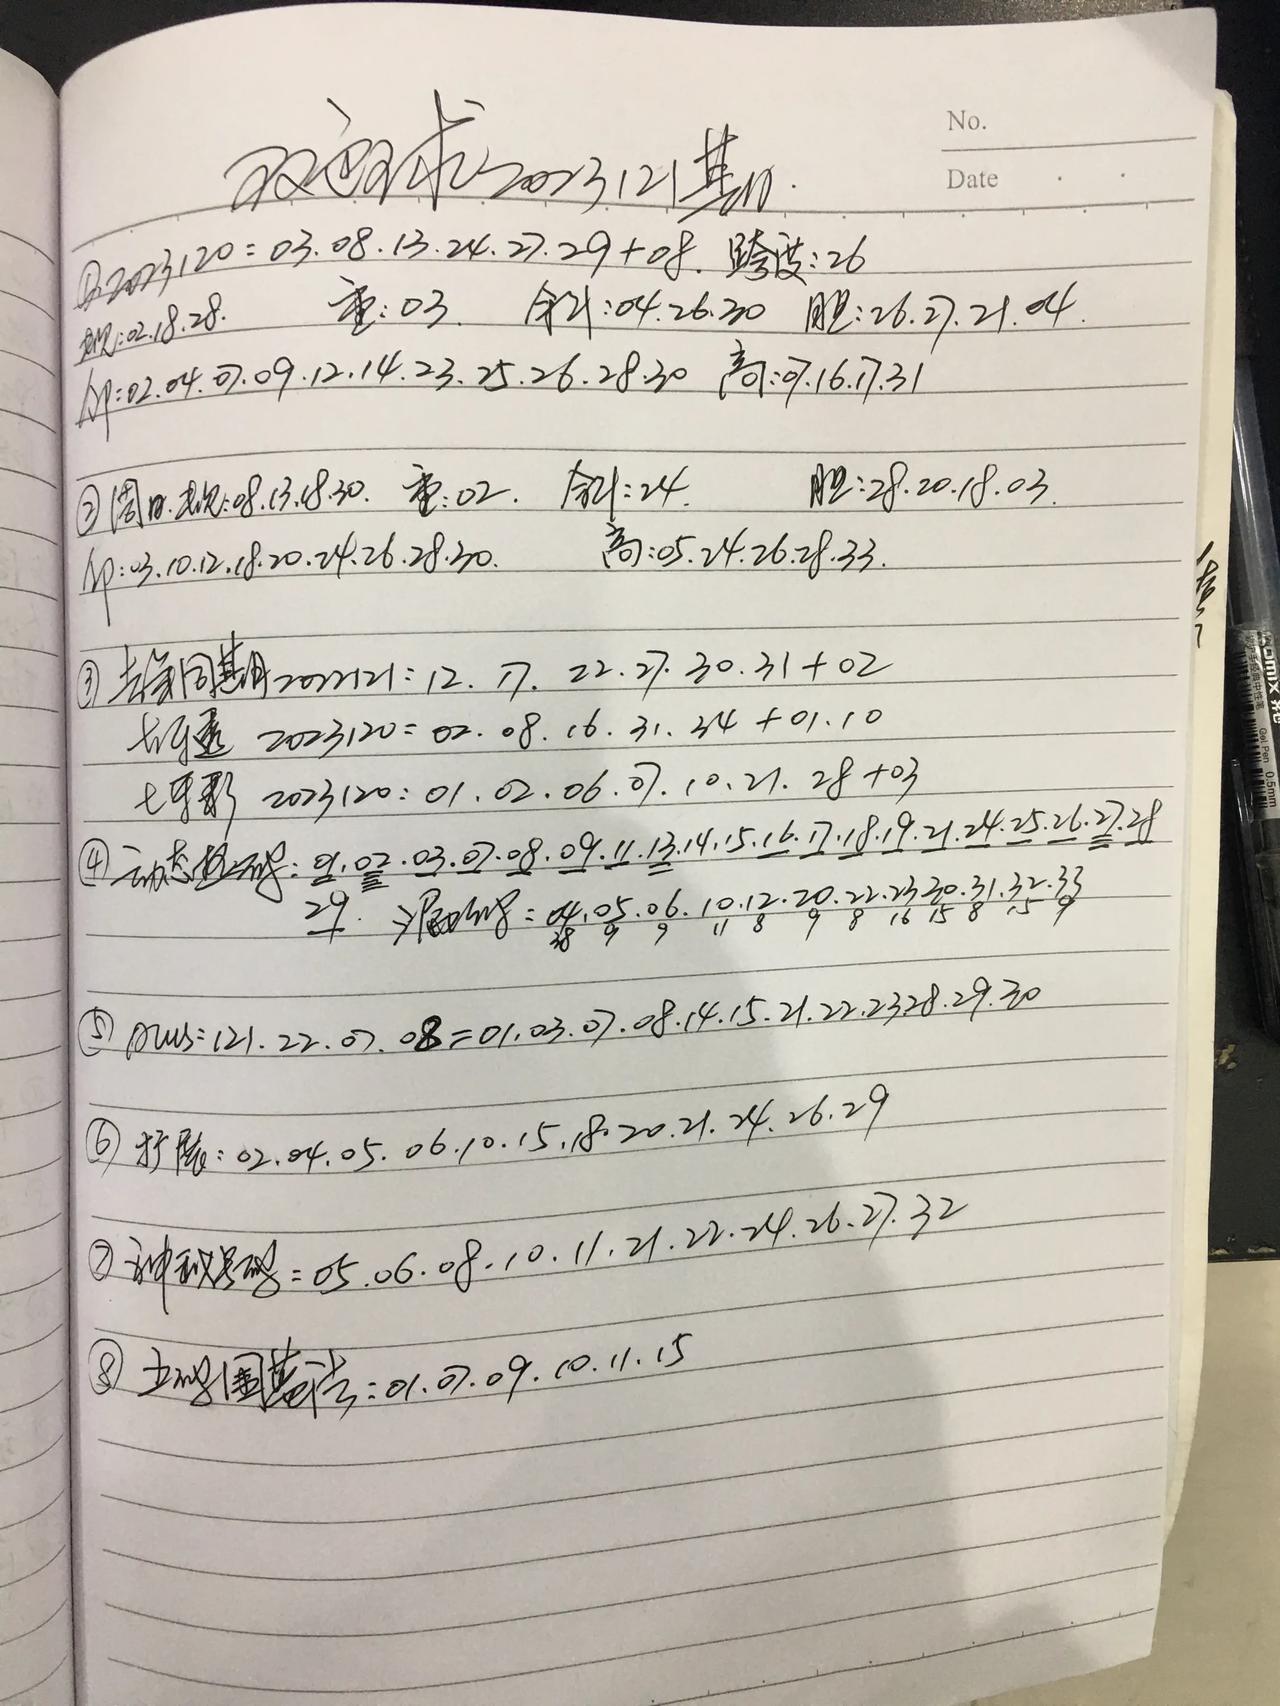 双色球2023121期.
No.
Date
①2023120=03.08.13.24.27.29+08. 跨度:26
规:02.18.28. 重:03. 余21:04.26.30 胆:26.27.21.04.
邻:02.04.07.09.12.14.23.25.26.28.30 高:07.16.17.31
②周日.规:08.13.18.30. 重:02. 余21:24. 胆:28.20.18.03.
邻:03.10.12.18.20.24.26.28.30. 高:05.24.26.28.33.
③去年同期2022121:12.17.22.27.30.31+02
大乐透 2023120=02.08.16.31.34+01.10
七乐彩 2023120:01.02.06.07.10.21.28+03
④动态热码:01.02.03.07.08.09.11.13.14.15.16.17.18.19.21.24.25.26.27.28
29. 冷码=04.05.06.10.12.20.22.23.30.31.32.33
38 9 9 11 8 9 8 16 15 8 15 9
⑤ 121.22.07.08=01.03.07.08.14.15.21.22.23.28.29.30
⑥扩展:02.04.05.06.10.15.18.20.21.24.26.29
⑦神秘号码=05.06.08.10.11.21.22.24.26.27.32
⑧五码围蓝:01.07.09.10.11.15
Gel Pen 0.5mm